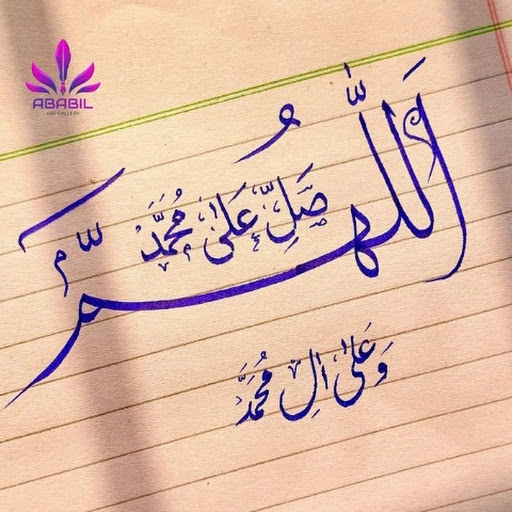 ABABIL
ART GALLERY
اَللّٰهُمَّ
صَلِّ عَلىٰ مُحَمَّدٍ
وَعَلىٰ اٰلِ مُحَمَّدٍ